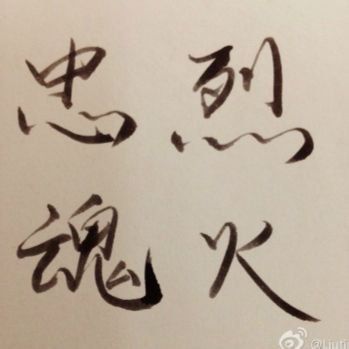 烈火
忠魂
@Liuti